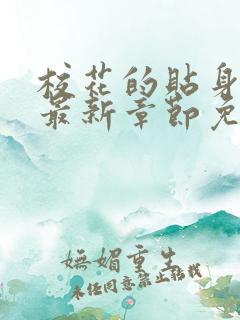 校花的贴身
最新章节免
嫵媚重生
未经同意禁止转载